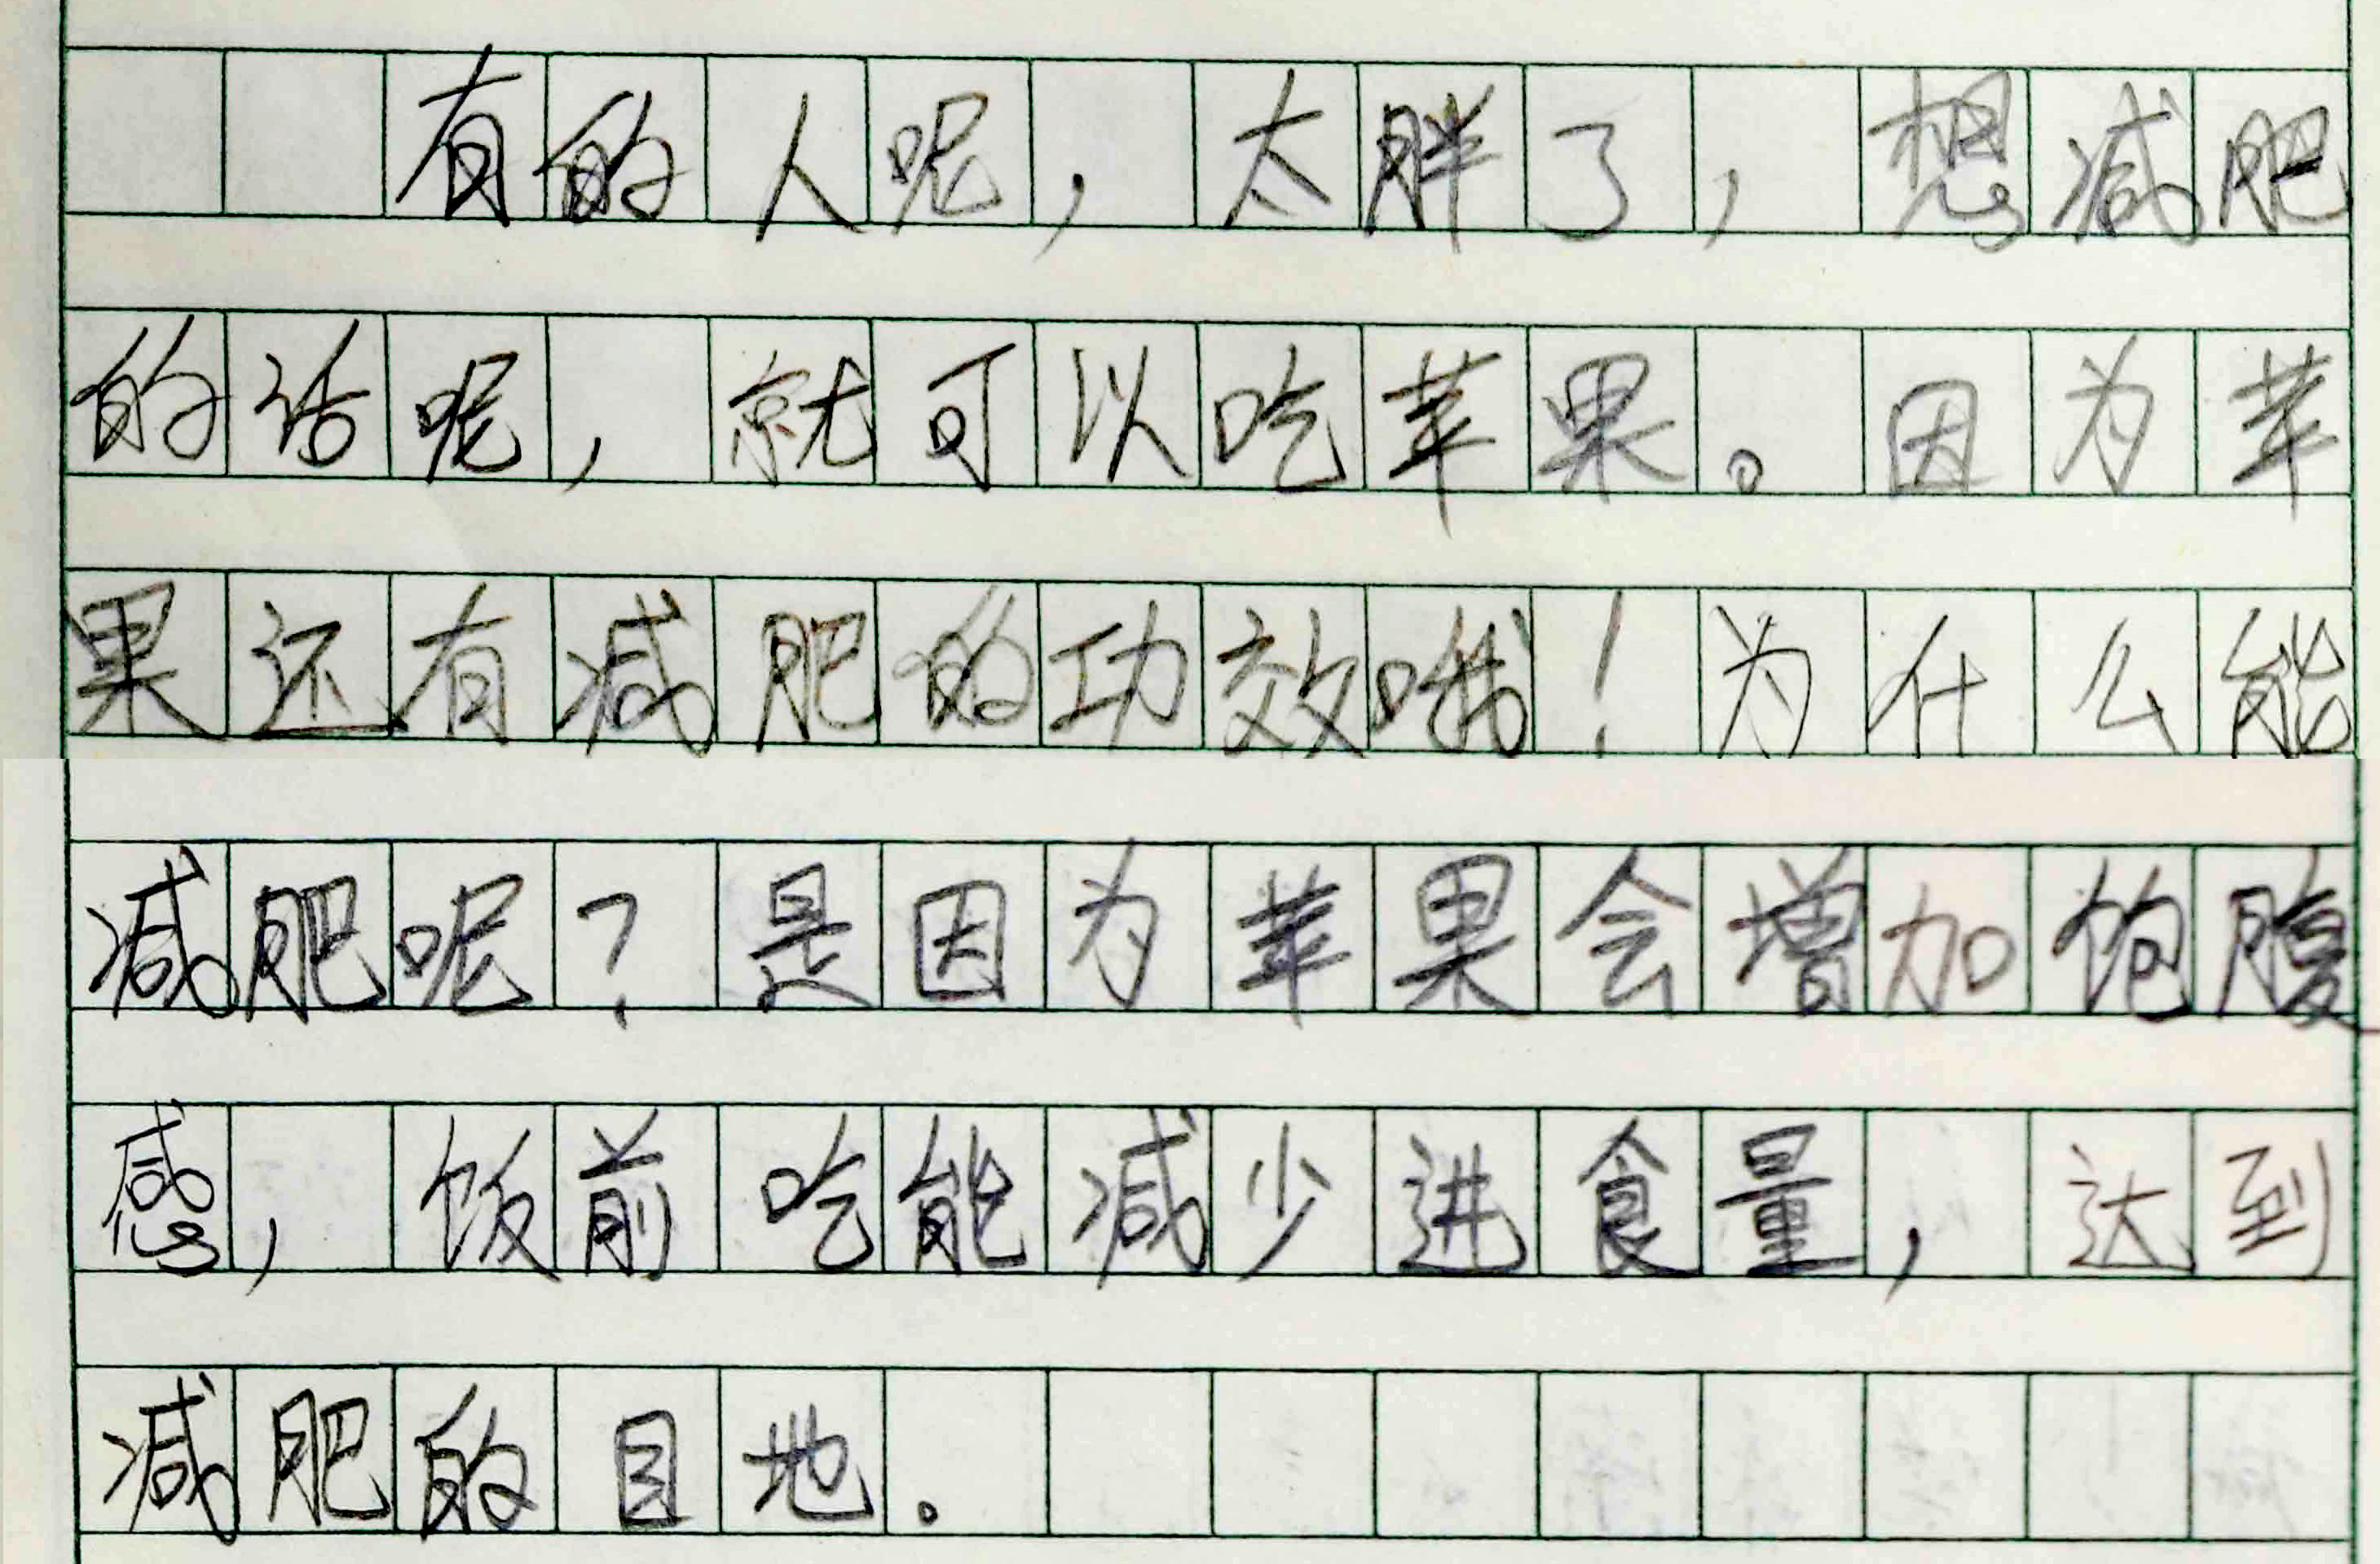 有的人呢，太胖了，想减肥
的话呢，就可以吃苹果。因为苹
果还有减肥的功效哦！为什么能
减肥呢？是因为苹果会增加饱腹
感，饭前吃能减少进食量，达到
减肥的目地。